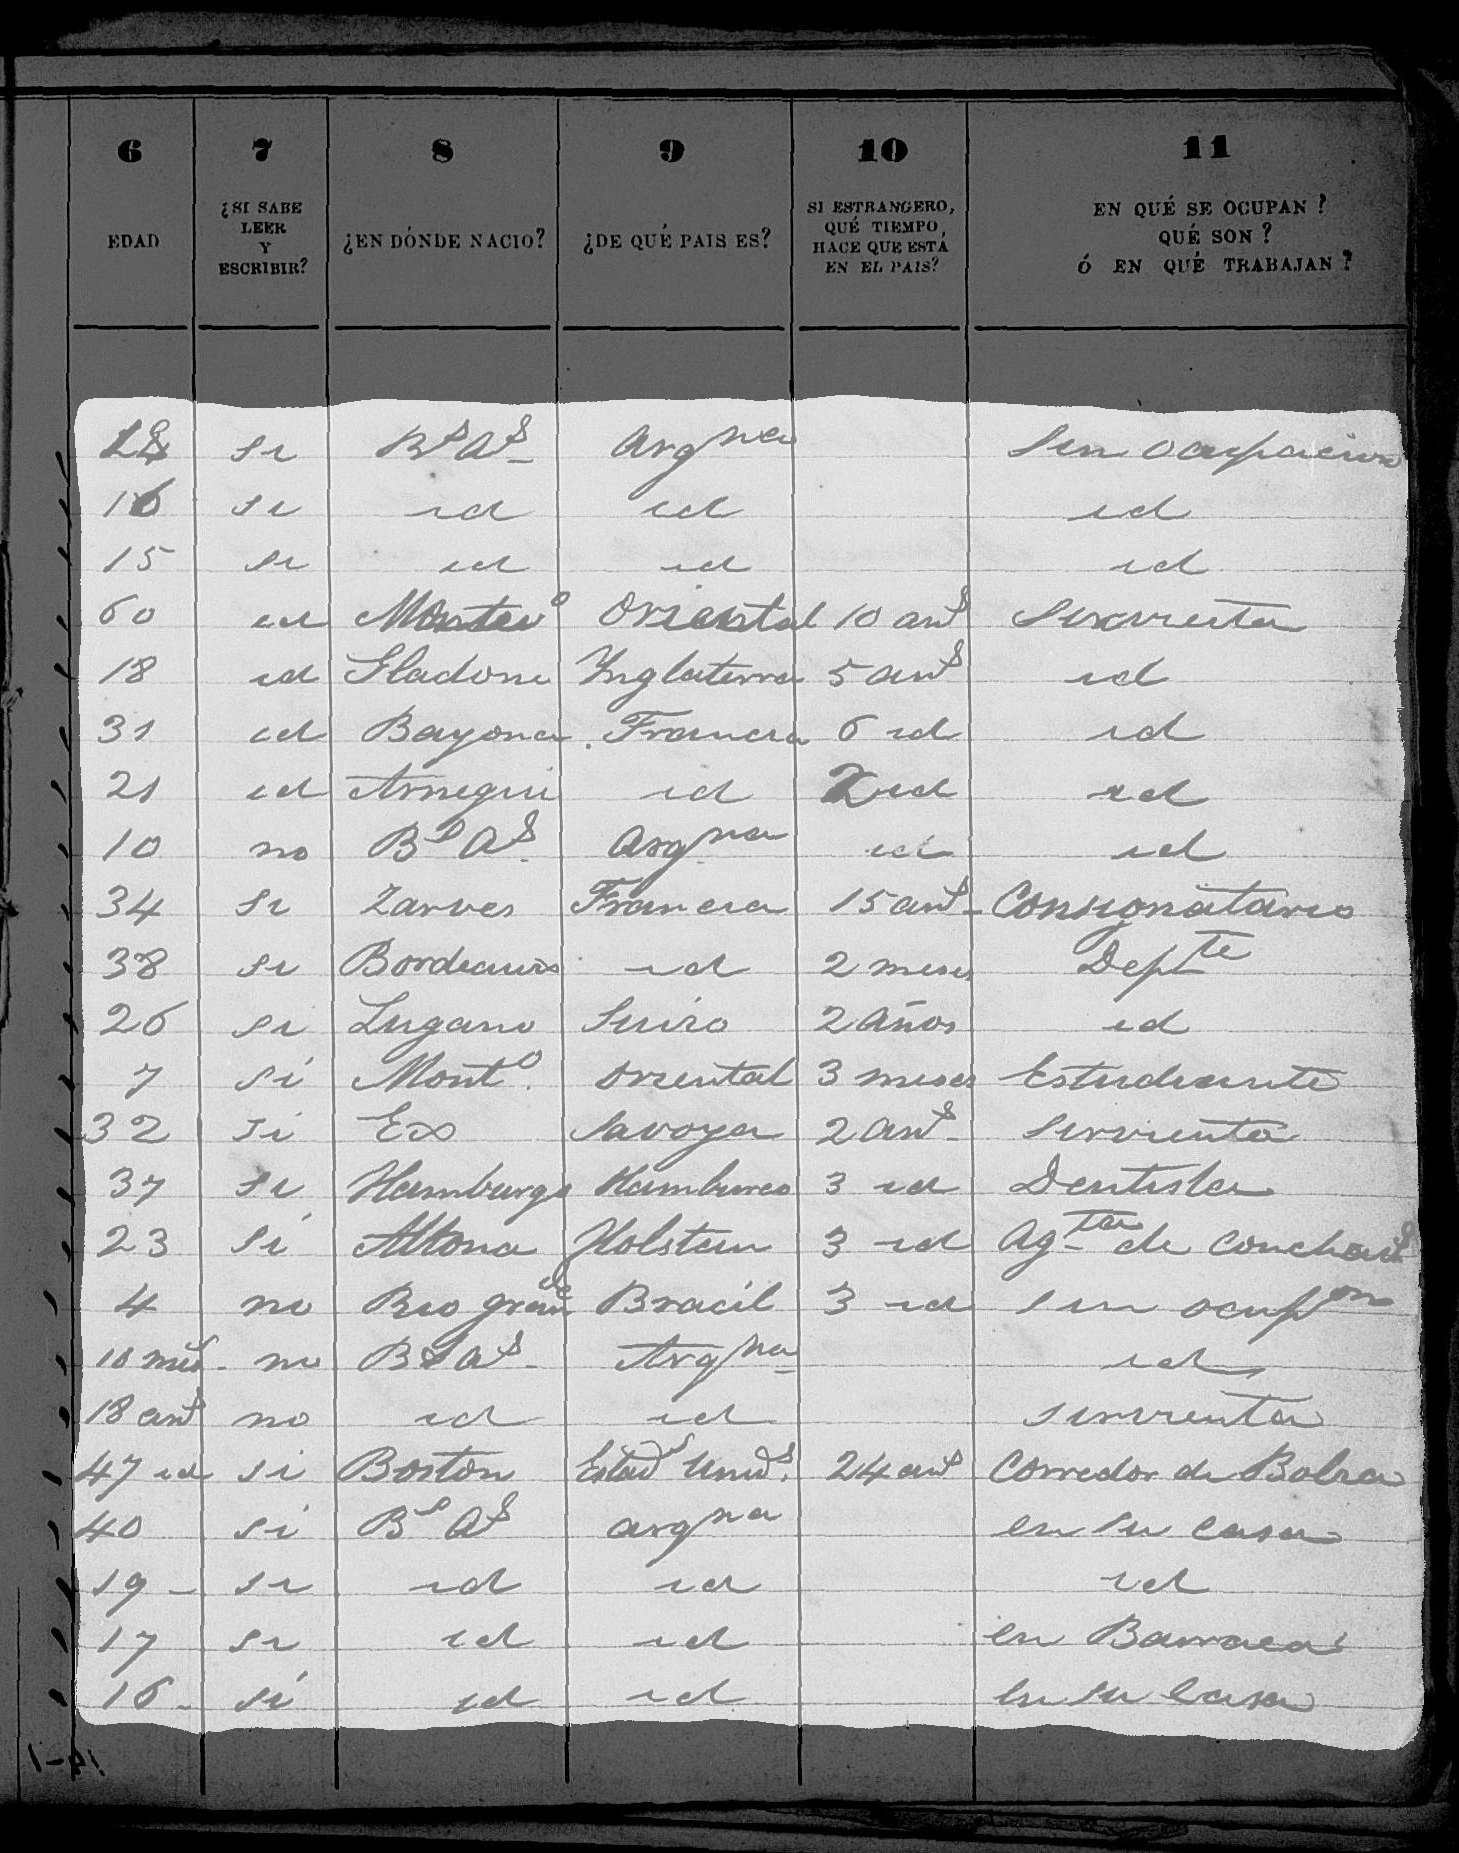 6 7 8 9 10 11
EDAD ¿SI SABE LEER Y ESCRIBIR? ¿EN DÓNDE NACIO? ¿DE QUÉ PAIS ES? SI ESTRANGERO, QUÉ TIEMPO, HACE QUE ESTÁ EN EL PAIS? EN QUÉ SE OCUPAN? QUÉ SON? Ó EN QUÉ TRABAJAN?
si Bs As Argna Sin ocupacion
16 si id id id
15 si id id id
60 id Montevo Oriental 10 ans Sirvienta
18 id Inglaterra 5 ans id
31 id Bayona Francia 6 id id
21 id Arnegui id 2 id id
10 no Bs As Argna id id
34 si Zarves Francia 15 ans Consignatario
38 si Bordeaux id 2 meses Depte
26 si Lugano Suizo 2 años id
7 si Monto. Oriental 3 meses Estudiante
32 si Ex Savoya 2 ans Sirvienta
37 si Hamburgo Hamburgo 3 id Dentista
23 si Altona Holstein 3 id de
4 no Rio grande Bracil 3 id Sin ocupon
10 mes no Bs As Argna id
18 ans no id id sirvienta
47 id si Boston Estads Unids. 24 ans Corredor de Bolsa
40 si Bs As argna en su casa
19 si id id id
17 si id id en Barracas
16 si id id en su casa